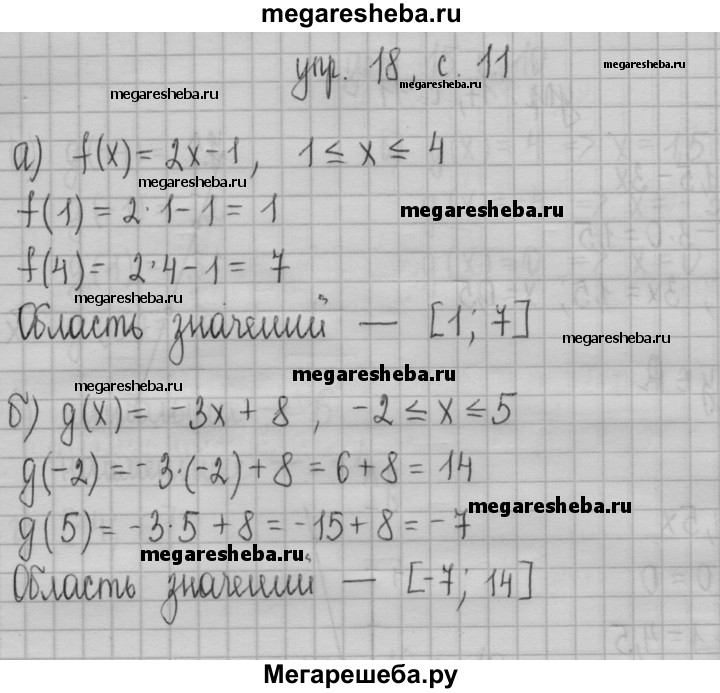 megaresheba.ru
упр. 18, с. 11
megaresheba.ru
megaresheba.ru
megaresheba.ru
а) f(x) = 2x - 1, 1 ≤ x ≤ 4
megaresheba.ru
f(1) = 2·1 - 1 = 1
megaresheba.ru
f(4) = 2·4 - 1 = 7
megaresheba.ru
Область значений — [1; 7]
megaresheba.ru
megaresheba.ru
megaresheba.ru
б) g(x) = -3x + 8, -2 ≤ x ≤ 5
g(-2) = -3·(-2) + 8 = 6 + 8 = 14
megaresheba.ru
g(5) = -3·5 + 8 = -15 + 8 = -7
megaresheba.ru
Область значений — [-7; 14]
Мегарешеба.ру